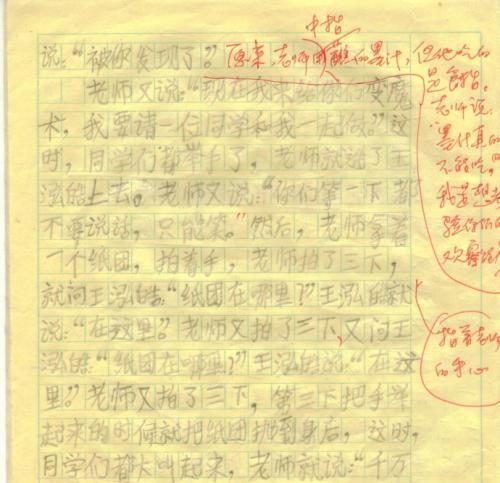 说:“被你发现了。”
老师又说:“现在我来给你们变魔
术,我要请一位同学和我一起做。”这
时,同学们都举手了,老师就派了王
泓皓上去。老师又说:“你们等一下都
不要说话,只能笑。”然后,老师拿着
一个纸团,拍着手,老师拍了三下,
就问王泓皓:“纸团在哪里?”王泓皓就
说:“在这里。”老师又拍了三下,又问王
泓皓:“纸团在哪里?”王泓皓说:“在这
里。”老师又拍了三下,第三下把手举
起来的时候就把纸团扔到身后,这时,
同学们都大叫起来,老师就说:“千万
中指
原来,老师用蘸的墨汁,但他吃的
是食指。
老师说:
墨汁真的
不能吃,
我是想考
验你们的
指着老师
的手心